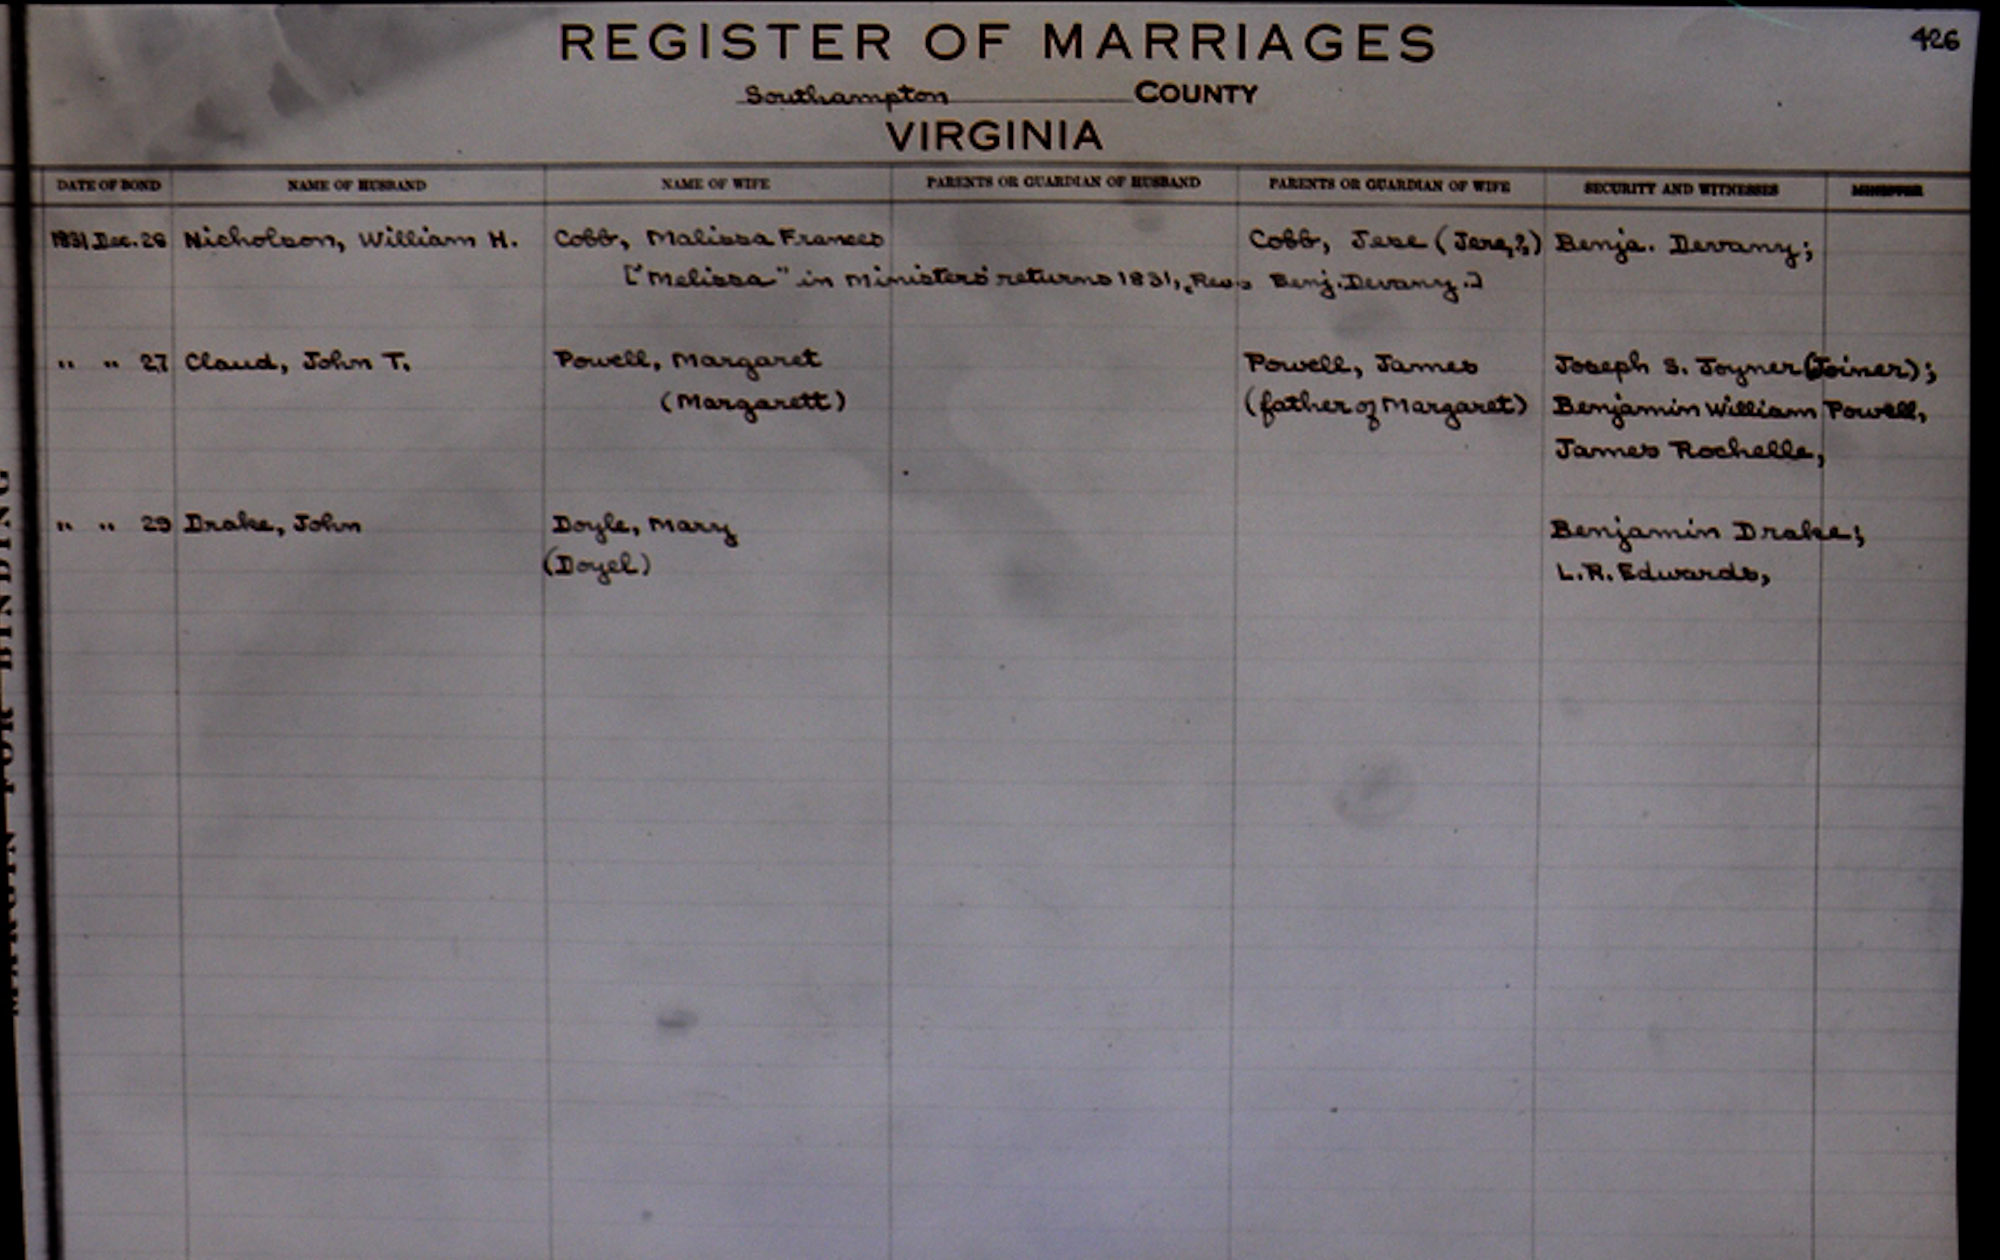 REGISTER OF MARRIAGES
426
Southampton COUNTY
VIRGINIA
DATE OF BOND NAME OF HUSBAND NAME OF WIFE PARENTS OR GUARDIAN OF HUSBAND PARENTS OR GUARDIAN OF WIFE SECURITY AND WITNESSES MINISTER
1831 Dec. 26 Nicholson, William H. Cobb, Malissa Frances Cobb, Jese (Jere,?,) Benja. Devany;
["Melissa" in Ministers' returns 1831, Rev. Benj. Devany.]
" " 27 Claud, John T. Powell, Margaret Powell, James Joseph S. Joyner (Joiner);
(Margarett) (father of Margaret) Benjamin William Powell,
James Rochelle,
" " 29 Drake, John Doyle, Mary Benjamin Drake;
(Doyel) L.R. Edwards,
MARGIN FOR BINDING